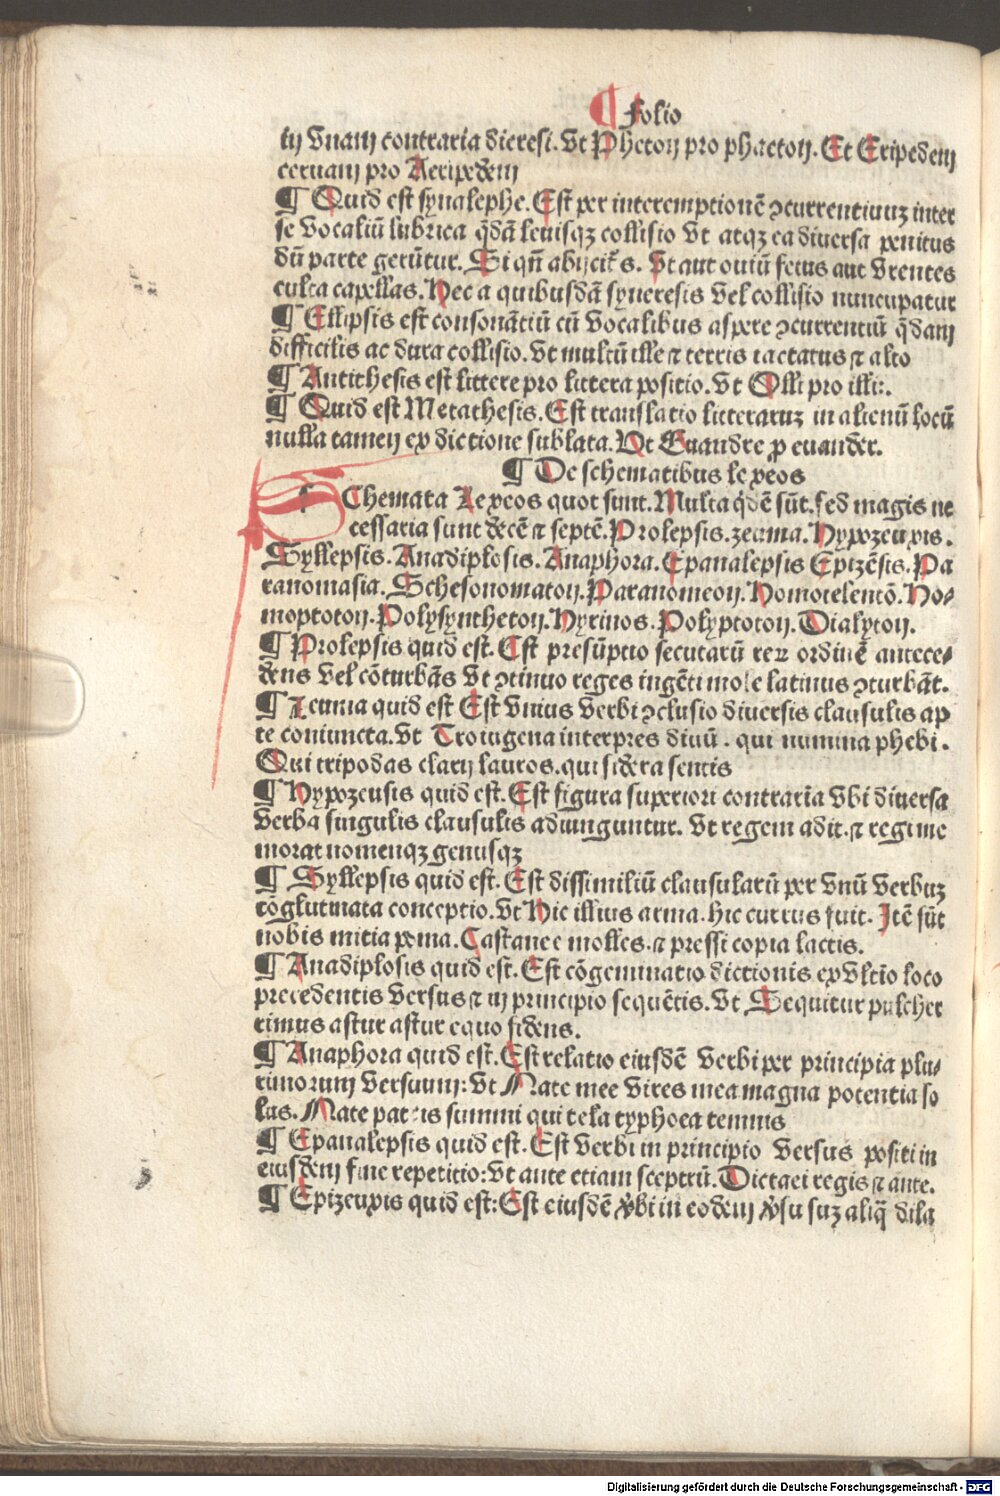 ¶ Folio
in vnam contraria dieresi. Vt Pheton pro phaeton. Et Eripedem
ceruam pro Aeripedem
¶ Quid est synalephe. Est per interemptionē ↄcurrentiuꝫ inter
se vocaliū lubrica q̄dā leuisqꝫ collisio vt atqꝫ ea diuersa penitus
dū parte gerūtur. Si qn̄ abijcit᷑ s. vt aut ouiū fetus aut vrentes
culta capellas. Hec a quibusdā syneresis vel collisio nuncupatur
¶ Ellipsis est consonātiū cū vocalibus aspere ↄcurrentiū q̄dam
difficilis ac dura collisio. vt multū ille ⁊ terris iactatus ⁊ alto
¶ Antithesis est littere pro littera positio. vt Olli pro illi:.
¶ Quid est Metathesis. Est translatio litteraruꝫ in alienū locū
nulla tamen ex dictione sublata. Vt Euandre ꝓ euander.
¶ De schematibus lexeos
SChemata Lexeos quot sunt. Multa q̇dē sūt. sed magis ne
cessaria sunt decē ⁊ septē. Prolepsis. zeuma. Hypozeuxis.
Syllepsis. Anadiplosis. Anaphora. Epanalepsis Epizēsis. Pa
ranomasia. Schesonomaton. Paranomeon. Homotelentō. Ho⸗
moptoton. Polysyntheton. Hyrinos. Polyptoton. Dialyton.
¶ Prolepsis quid est. Est presūptio secutarū reꝝ ordinē antece⸗
dens vel cōturbās vt ↄtinuo reges ingēti mole latinus ↄturbāt.
¶ Zeuma quid est Est vnius verbi ↄclusio diuersis clausulis ap
te coniuncta. vt Troiugena interpres diuū. qui numina phebi.
Qui tripodas clarij lauros. qui sidera sentis
¶ Hypozeusis quid est. Est figura superiori contraria vbi diuersa
verba singulis clausulis adiunguntur. vt regem adit. ⁊ regi me
morat nomenqꝫ genusqꝫ
¶ Syllepsis quid est. Est dissimiliū clausularū per vnū verbuꝫ
cōglutinata conceptio. vt Hic illius arma. hic currus fuit. Itē sūt
nobis mitia poma. Castanee molles. ⁊ pressi copia lactis.
¶ Anadiplosis quid est. Est cōgeminatio dictionis ex vltīo loco
precedentis versus ⁊ in principio sequētis. vt Sequitur pulcher
rimus astur astur equo fidens.
¶ Anaphora quid est. Est relatio eiusdē verbi per principia plu⸗
rimorum versuum: vt Nate mee vires mea magna potentia so
lus. Nate patris summi qui tela typhoea temnis
¶ Epanalepsis quid est. Est verbi in principio versus positi in
eiusdem fine repetitio: vt ante etiam sceptrū. Dictaei regis ⁊ ante.
¶ Epizeuxis quid est: Est eiusdē v̓bi in eodem v̓su suꝫ aliq̄ dila
Digitalisierung gefördert durch die Deutsche Forschungsgemeinschaft - DFG